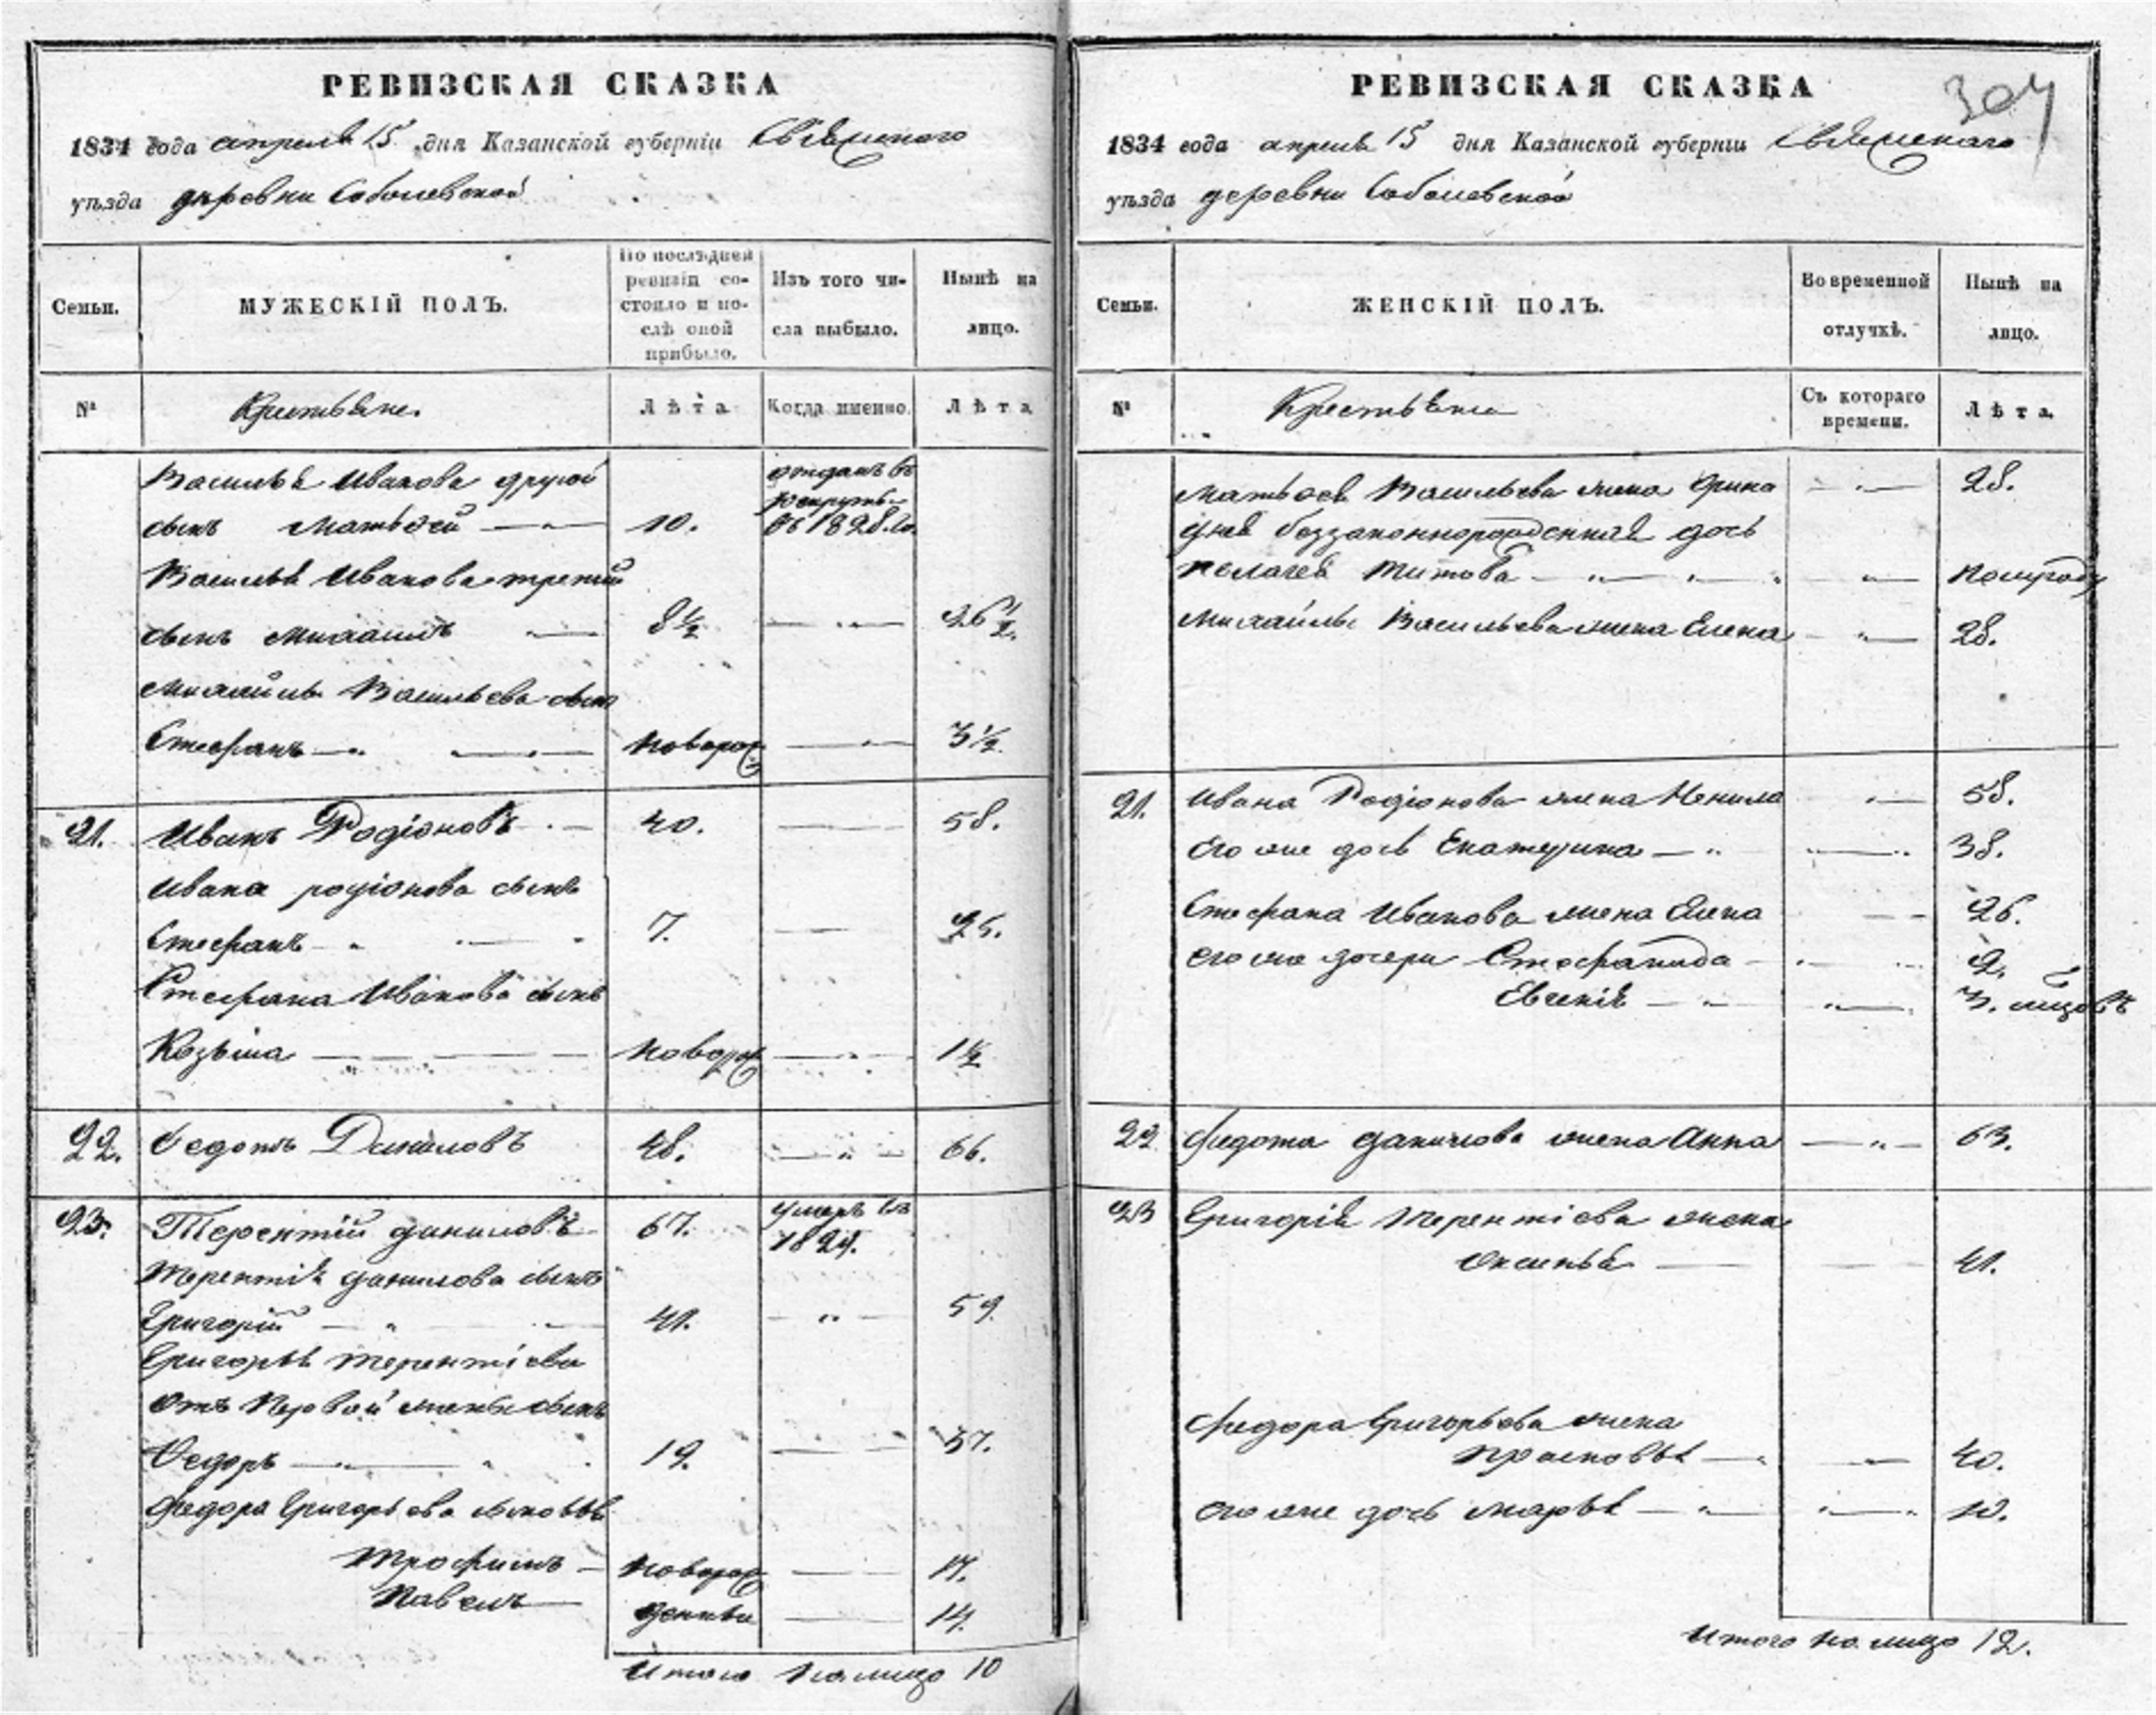 РЕВИЗСКАЯ СКАЗКА
1834 года апреля 15 дня Казанской губерніи Свіяжскаго
уѣзда деревни Соболевской
Семьи.
МУЖЕСКІЙ ПОЛЪ.
По послѣдней ревизіи со-
стояло и по-
слѣ оной
прибыло.
Изъ того чи-
сла выбыло.
Нынѣ на
лицо.
№
Крестьяне.
Лѣта
Когда именно.
Лѣта
Василья Иванова другой отданъ въ
рекруты
сынъ Матвей 10. въ 1828.го
Василья Иванова третий
сынъ Михаилъ 8½ 26½.
Михайлы Васильева сынъ
Стефанъ новорож 3½.
21. Иванъ Родіоновъ 40. 58.
Ивана родіонова сынъ
Стефанъ 7. 25.
Стефана Иванова сынъ
Козьма новорож 1½
22. Федотъ Даниловъ 48. 66.
23. Терентій даниловъ 67. умеръ въ
1824.
Терентія данилова сынъ
Григорій 41. 59.
Григорья терентіева
отъ Первой жены сынъ
Федоръ 19. 37.
Федора Григорьева сыновья
Трофимъ новорож 17.
Павелъ 14.
Итого на лицо 10
РЕВИЗСКАЯ СКАЗКА
304
1834 года апреля 15 дня Казанской губерніи Свіяжскаго
уѣзда деревни Соболевской
Семьи.
ЖЕНСКІЙ ПОЛЪ.
Во временной
отлучкѣ.
Нынѣ на
лицо.
№
Съ котораго
времени.
Лѣта.
Матвея Васильева жена Орина 28.
у нея беззаконнорожденная дочь
пелагея Титова полугоду
Михайлы Васильева жена Елена 28.
21. Ивана Родіонова жена Ненила 58.
его же дочь Екатерина 38.
Стефана Иванова жена Елена 26.
его же дочери Стефанида 2.
Евгенія
22 Федота данилова жена Анна 63.
23 Григорія Терентіева жена
Оксинья 41.
Федора Григорьева жена
прасковья 40.
его же дочь марья 10.
Итого на лицо 12.